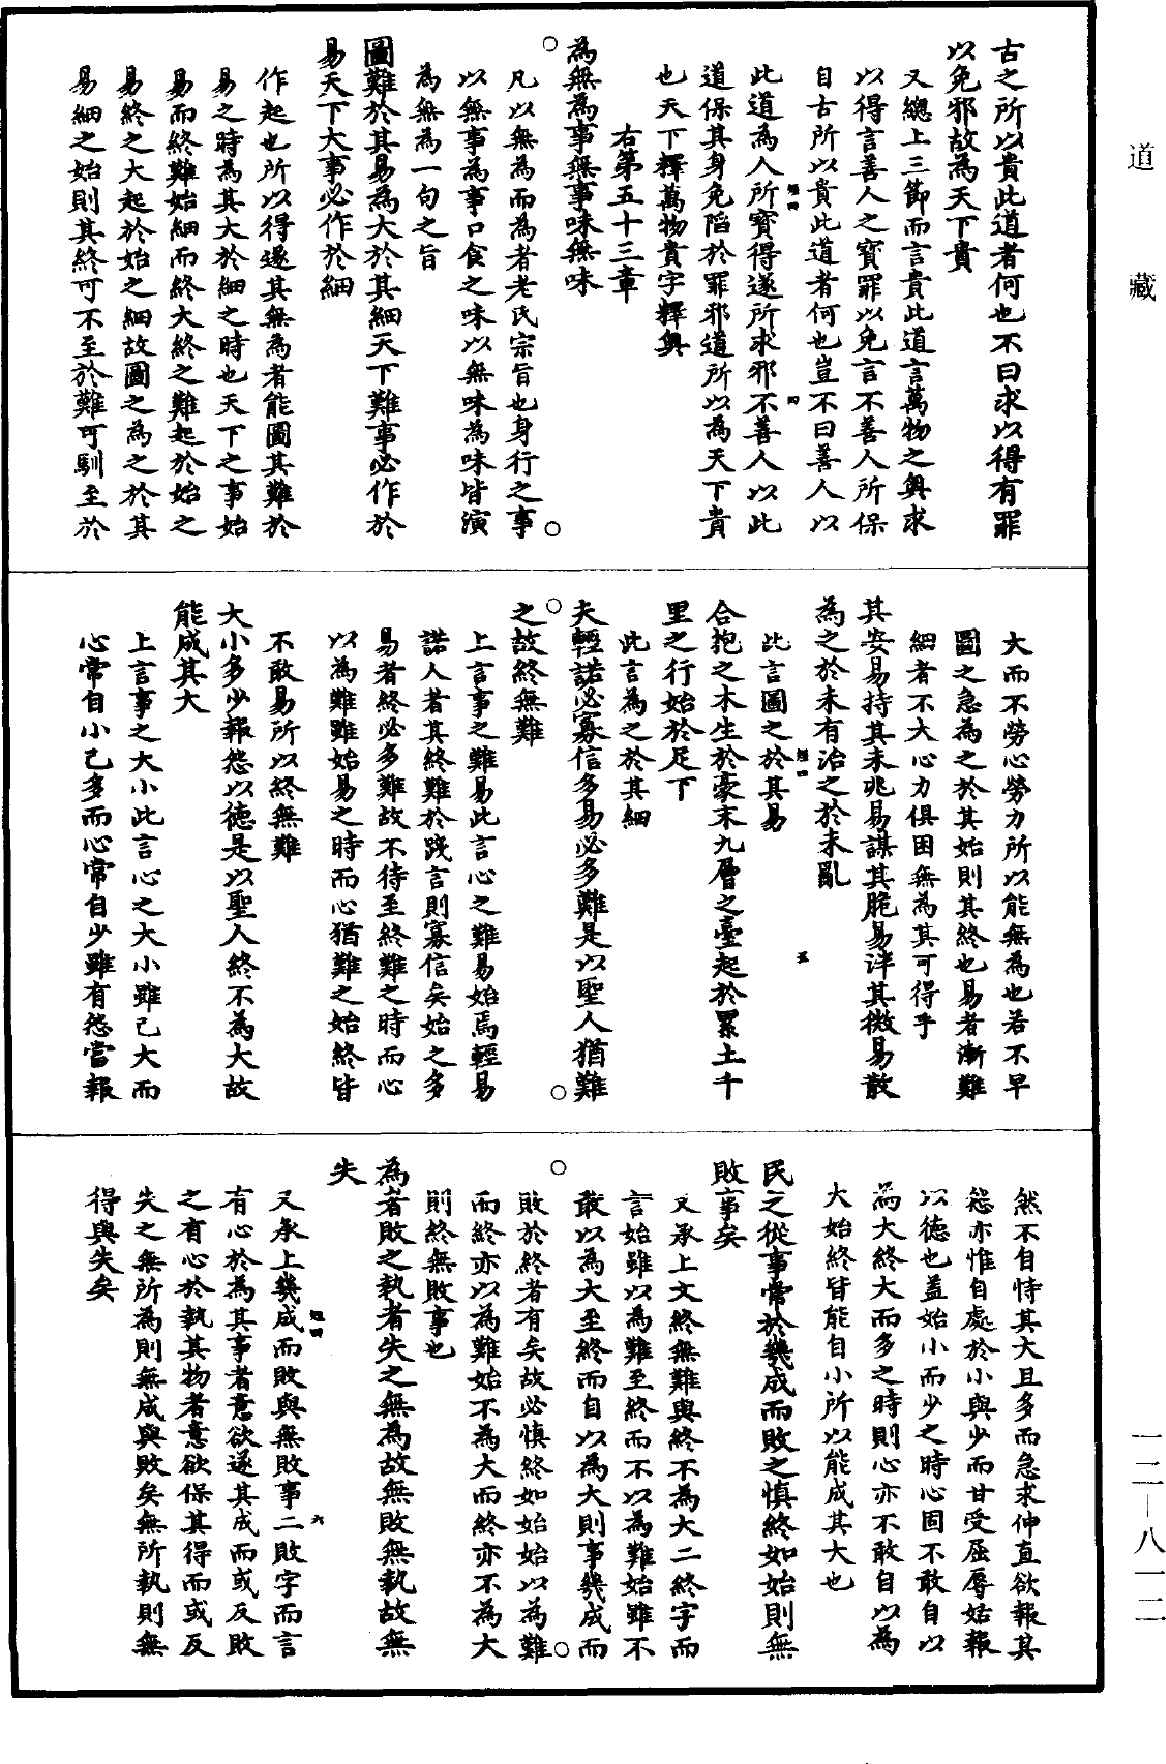 道藏
古之所以貴此道者何也不曰求以得有罪
以免邪故為天下貴
又總上三節而言貴此道言萬物之奧求
以得言善人之寶罪以免言不善人所保
自古所以貴此道者何也豈不曰善人以
此道為人所寶得遂所求邪不善人以此
道保其身免陷於罪邪道所以為天下貴
也天下釋萬物貴字釋奧
右第五十三章
為無為事無事味無味
凡以無為而為者老氏宗旨也身行之事
以無事為事口食之味以無味為味皆演
為無為一句之旨
圖難於其易為大於其細天下難事必作於
易天下大事必作於細
作起也所以得遂其無為者能圖其難於
易之時為其大於細之時也天下之事始
易而終難始細而終大終之難起於始之
易終之大起於始之細故圖之為之於其
易細之始則其終可不至於難可馴至於
大而不勞心勞力所以能無為也若不早
圖之急為之於其始則其終也易者漸難
細者不大心力俱困無為其可得乎
其安易持其未兆易謀其脆易泮其微易散
為之於未有治之於未亂
此言圖之於其易
合抱之木生於豪末九層之臺起於累土千
里之行始於足下
此言為之於其細
夫輕諾必寡信多易必多難是以聖人猶難
之故終無難
上言事之難易此言心之難易始焉輕易
諾人者其終難於踐言則寡信矣始之多
易者終必多難故不待至終難之時而心
以為難雖始易之時而心猶難之始終皆
不敢易所以終無難
大小多少報怨以德是以聖人終不為大故
能成其大
上言事之大小此言心之大小雖已大而
心常自小已多而心常自少雖有怨當報
然不自恃其大且多而急求伸直欲報其
怨亦惟自處於小與少而甘受屈辱姑報
以德也蓋始小而少之時心固不敢自以
為大終大而多之時則心亦不敢自以為
大始終皆能自小所以能成其大也
民之從事常於幾成而敗之慎終如始則無
敗事矣
又承上文終無難與終不為大二終字而
言始雖以為難至終而不以為難始雖不
敢以為大至終而自以為大則事幾成而
敗於終者有矣故必慎終如始始以為難
而終亦以為難始不為大而終亦不為大
則終無敗事也
為者敗之執者失之無為故無敗無執故無
失
又承上幾成而敗與無敗事二敗字而言
有心於為其事者意欲遂其成而或反敗
之有心於執其物者意欲保其得而或反
失之無所為則無成與敗矣無所執則無
得與失矣
一二—八一二